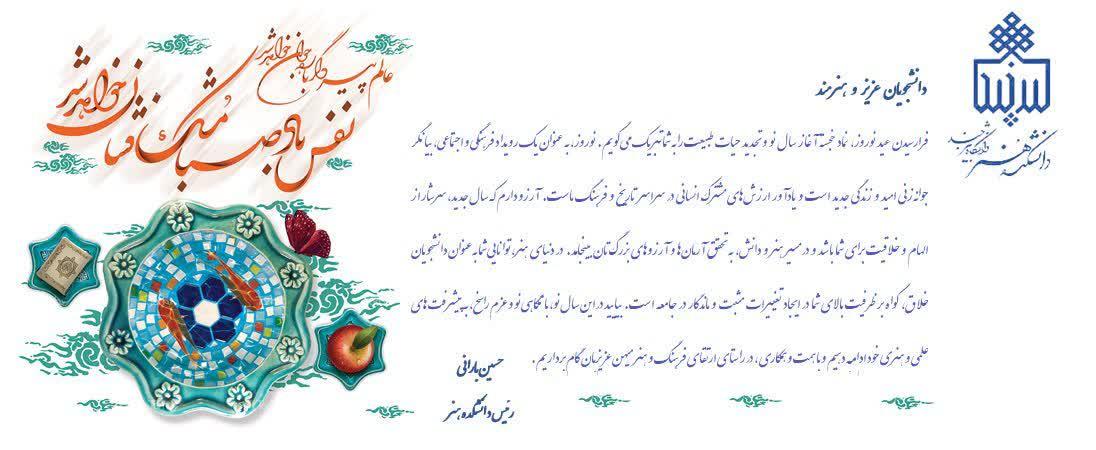 عالم پیر دگرباره جوان خواهد شد
نفس باد صبا مشک فشان خواهد شد
دانشکده هنر
دانشگاه بیرجند
دانشجویان عزیز و هنرمند
فرارسیدن عید نوروز، نماد خجسته آغاز سال نو و تجدید حیات طبیعت را به شما تبریک می گویم. نوروز، به عنوان یک رویداد فرهنگی و اجتماعی، بیانگر
جوانه زنی امید و زندگی جدید است و یادآور ارزش های مشترک انسانی در سراسر تاریخ و فرهنگ ماست. آرزو دارم که سال جدید، سرشار از
الهام و خلاقیت برای شما باشد و در مسیر هنر و دانش، به تحقق آرمان ها و آرزوهای بزرگ تان بینجامد. در دنیای هنر، توانایی شما به عنوان دانشجویان
خلاق، گواه بر ظرفیت بالای شما در ایجاد تغییرات مثبت و ماندگار در جامعه است. بیایید در این سال نو، با نگاهی نو و عزم راسخ، به پیشرفت های
علمی و هنری خود ادامه دهیم و با همت و همکاری، در راستای ارتقای فرهنگ و هنر میهن عزیزمان گام برداریم.
حسین بارانی
رئیس دانشکده هنر